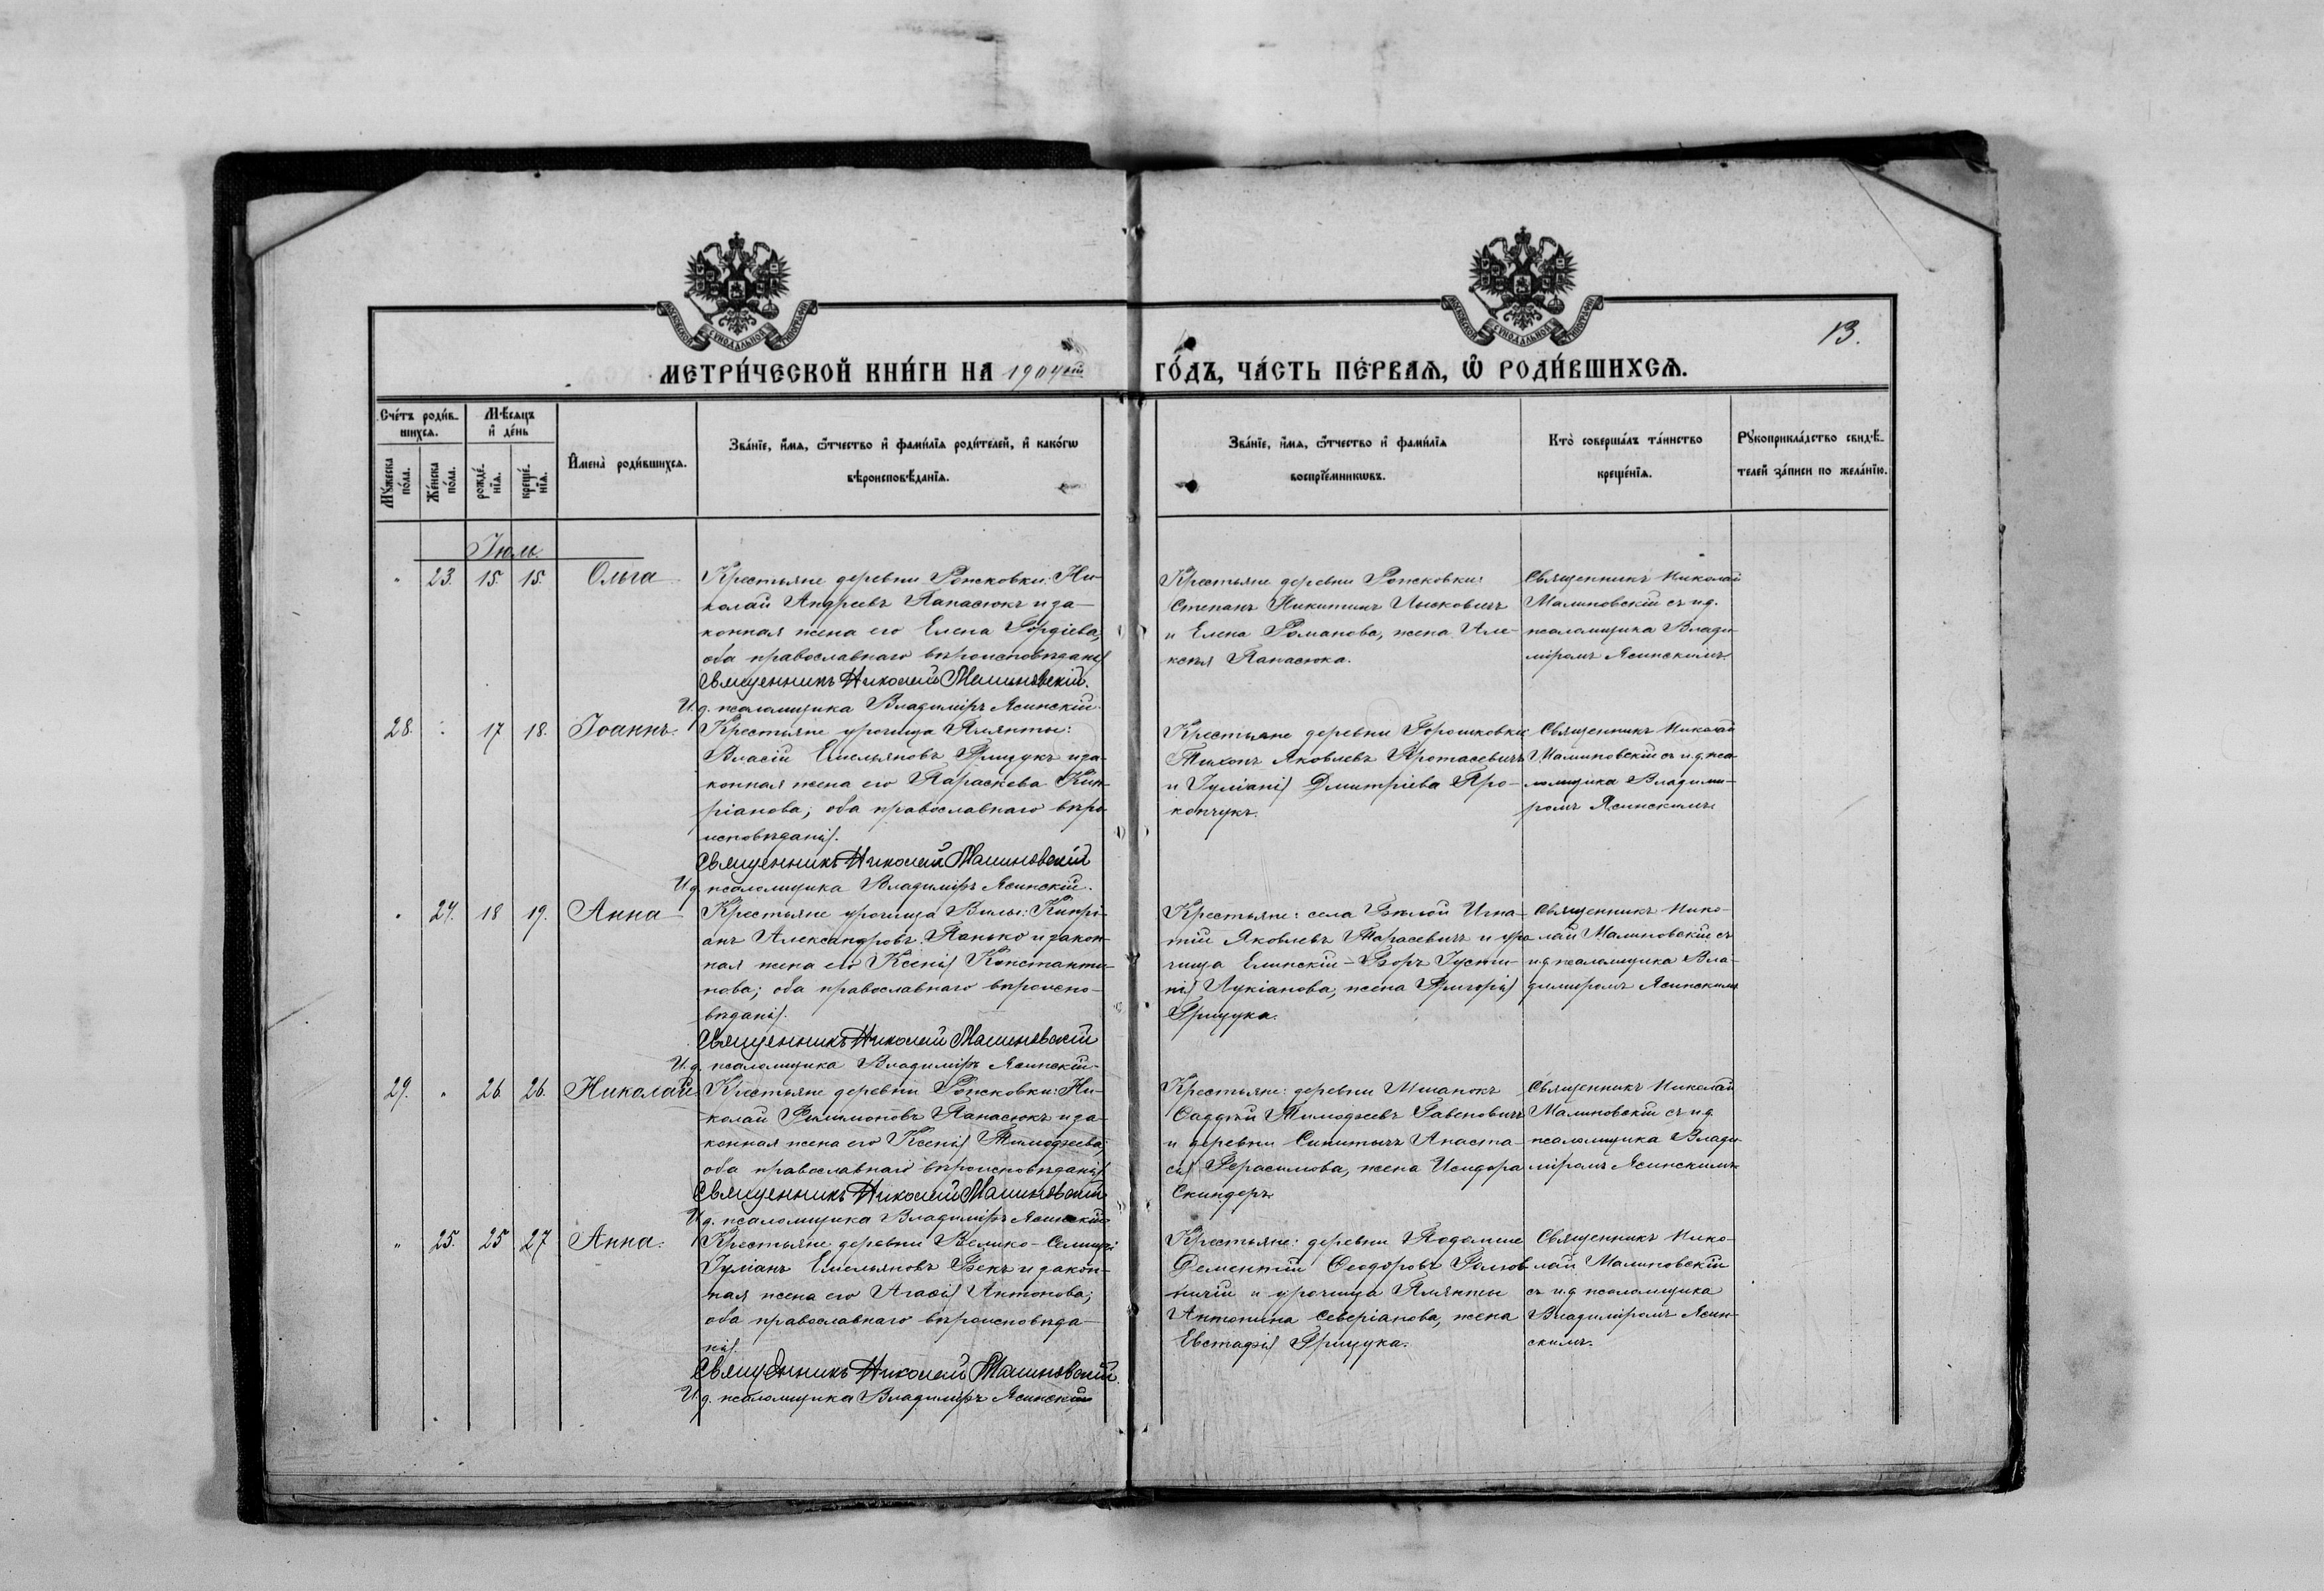 13.
МЕТРИ́ЧЕСКОЙ КНИ́ГИ НА 1904ый ГО́ДЪ, ЧА́СТЬ ПЕ́РВАѦ, Ѡ҆ РОДИ́ВШИХСѦ.
Сче́тъ роди́в-
шихсѧ.
Мꙋ́жеска по́ла.
Же́нска по́ла.
Мѣ́сѧцъ
и҆ де́нь
рожде́-
нїѧ.
креще́-
нїѧ.
И҆мена̀ роди́вшихсѧ.
Зва́нїе, и҆́мѧ, ѻ҆́тчество и҆ фами́лїѧ роди́телей, и҆ како́гѡ
вѣроисповѣ́данїѧ.
Зва́нїе, и҆́мѧ, ѻ҆́тчество и҆ фами́лїѧ
воспрїе́мникѡвъ.
Кто̀ соверша́лъ та́инство
креще́нїѧ.
Рꙋкоприкла́дство свидѣ́-
телей за́писи по жела́нїю.
Іюль.
" 23. 15. 15. Ольга
Крестьяне деревни Ронсковки: Ни-
колай Андреевъ Панасюкъ и за-
конная жена его Елена Гордіева,
оба православнаго вѣроисповѣданія
Священникъ Николай Малиновскій.
И. д. псаломщика Владиміръ Ясинскій.
Крестьяне деревни Ронсковки:
Степанъ Никитинъ Лысковичъ
и Елена Романова, жена Але-
ксѣя Панасюка.
Священникъ Николай
Малиновскій съ и.д.
псаломщика Влади-
міромъ Ясинскимъ.
28. " 17 18. Іоаннъ.
Крестьяне урочища Плянты:
Власій Емельяновъ Грицукъ и за-
конная жена его Параскева Кип-
ріанова; оба православнаго вѣро-
исповѣданія.
Священникъ Николай Малиновскій
И. д. псаломщика Владиміръ Ясинскій.
Крестьяне деревни Горошковки
Тихонъ Яковлевъ Протасевичъ
и Іуліанія Дмитріева Про-
копчукъ.
Священникъ Николай
Малиновскій съ и.д. пса-
ломщика Владими-
ромъ Ясинскимъ
" 24. 18 19. Анна
Крестьяне урочища Вилы: Кипрі-
анъ Александровъ Панько и закон-
ная жена его Ксенія Константи-
нова; оба православнаго вѣроиспо-
вѣданія.
Священникъ Николай Малиновскій
И. д. псаломщика Владиміръ Ясинскій.
Крестьяне: села Бѣлой Игна-
тій Яковлевъ Тарасевичъ и уро-
чища Елинскій-Боръ Іусти-
нія Лукіанова, жена Григорія
Грицука.
Священникъ Нико-
лай Малиновскій съ
и.д. псаломщика Вла-
димиромъ Ясинскимъ
29. " 26. 26. Николай
Крестьяне деревни Ронсковки: Ни-
колай Филимоновъ Панасюкъ и за-
конная жена его Ксенія Тимофеева;
оба православнаго вѣроисповѣданія
Священникъ Николай Малиновскій
И. д. псаломщика Владиміръ Ясинскій
Крестьяне: деревни Мшанокъ
Фаддѣй Тимофеевъ Гавеновичъ
и деревни Синитычъ Анаста-
сія Герасимова, жена Исидора
Скиндеръ
Священникъ Николай
Малиновскій съ и.д.
псаломщика Влади-
міромъ Ясинскимъ
" 25. 25 27 Анна.
Крестьяне деревни Велико-Селищи
Іуліанъ Емельяновъ Бекъ и закон-
ная жена его Агафія Антонова;
оба православнаго вѣроисповѣда-
нія.
Священникъ Николай Малиновскій.
И. д. псаломщика Владиміръ Ясинскій
Крестьяне: деревни
Дементій Ѳеодоровъ
и урочища Плянты
Антонина Северіанова, жена
Евстафія Грицука.
Священникъ Нико-
лай Малиновскій
съ и.д. псаломщика
Владиміромъ Ясин-
скимъ.